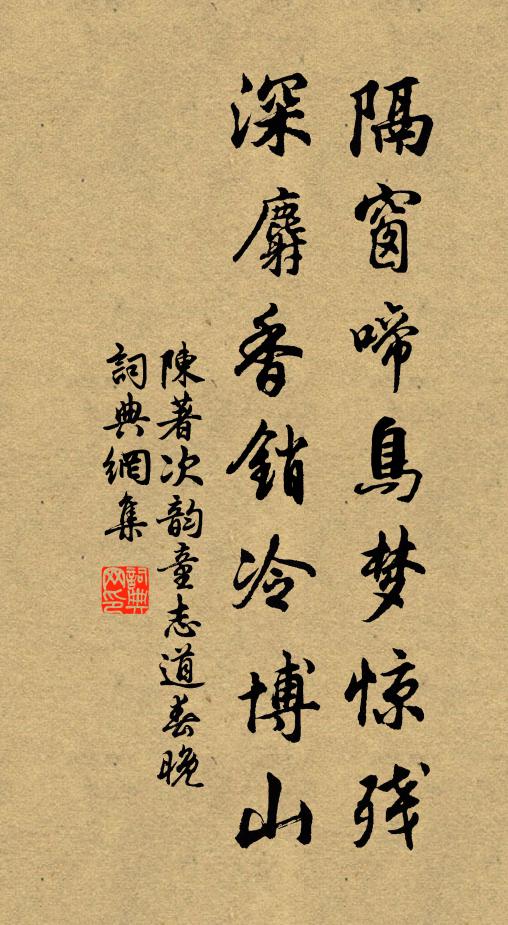 隔窗啼鳥梦惊残
深麝香銷冷博山
陳著次韵童志道春晚
詞典網集
詞典网印